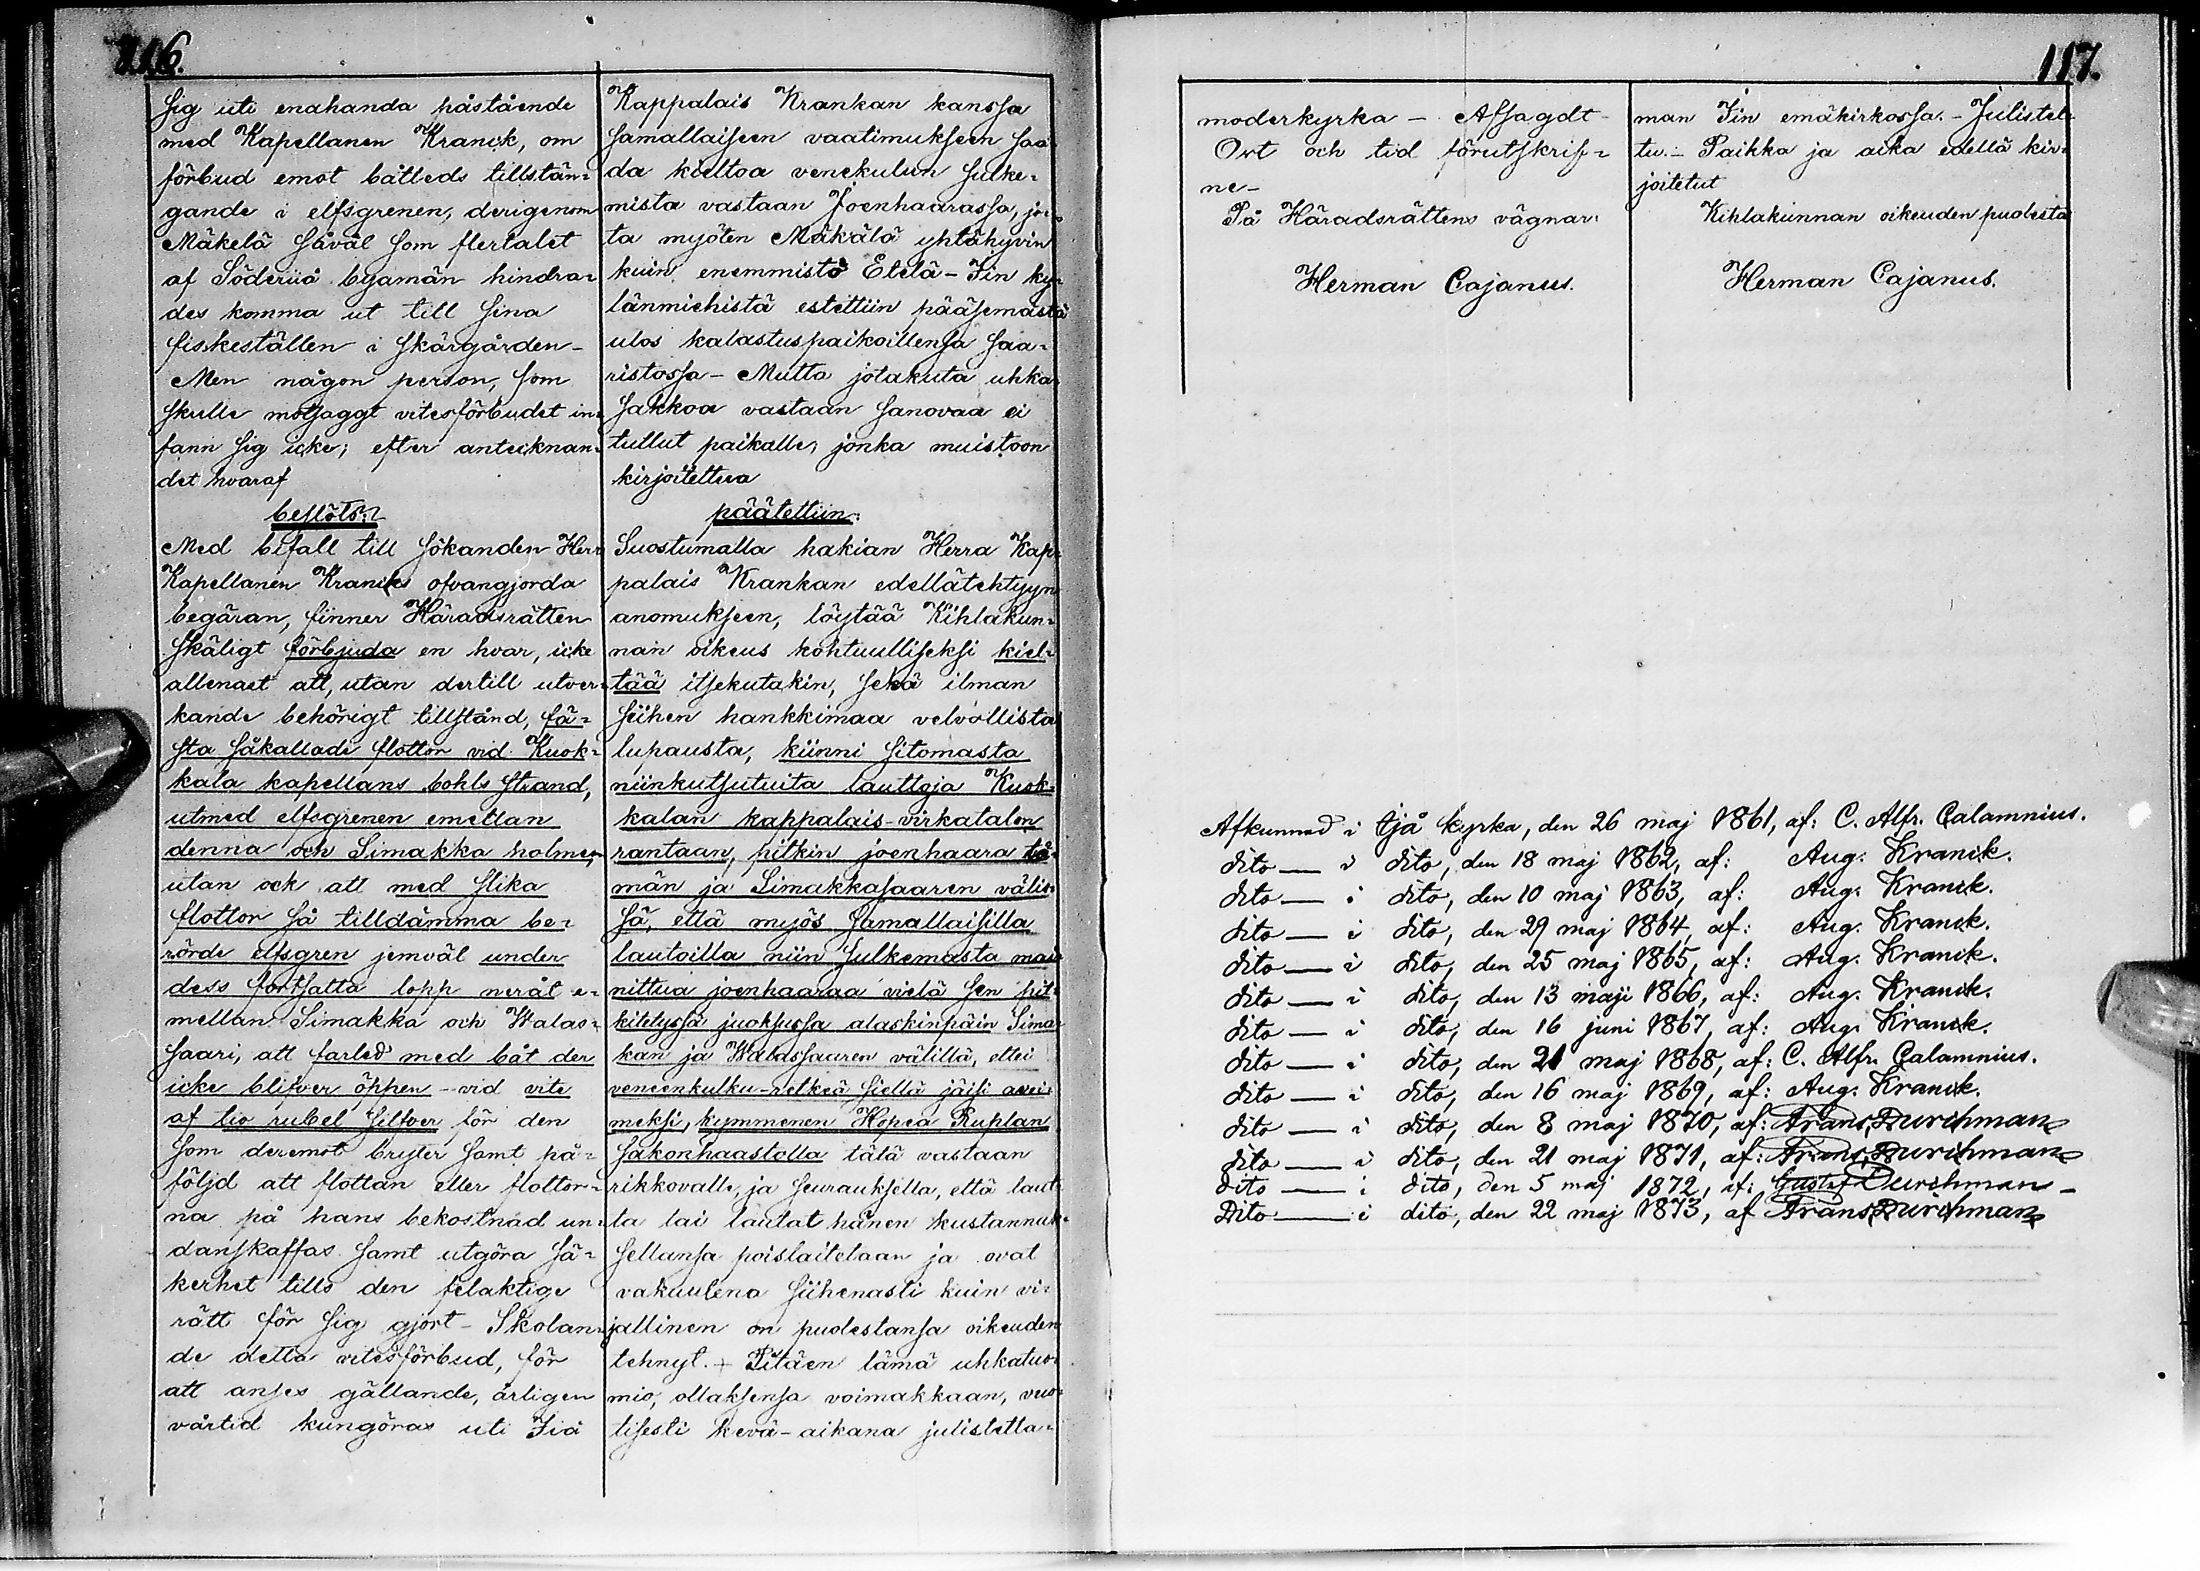 116.
sig uti enahanda påstående
med Kapellanen Kranck, om
förbud emot båtleds tillstän-
gande i elfsgrenen, derigenom
Mäkelä såväl som flertalet
af Söderiiå byamän hindra-
des komma ut till sina
fiskeställen i skärgården-
Men någon person, som
skulle motsagt vitesförbudet in-
fann sig icke; efter antecknan-
det hvaraf
beslöts:
Med bifall till sökanden Herr
Kapellanen Krancks ofvangjorda
begäran, finner Häradsrätten
skäligt förbjuda en hvar, icke
allenast att, utan dertill utver-
kande behörigt tillstånd, fä-
sta såkallade flottor vid Kuok-
kala kapellans bohls strand,
utmed elfsgrenen emellan
denna och Simakka holmen
utan ock att med slika
flottor så tilldämma be-
rörde elfsgren jemväl under
dess fortsatta lopp neråt e-
mellan Simakka och Walas-
saari, att farled med båt der
icke blifver öppen - vid vite
af tio rubel silfver för den
som deremot bryter samt på-
följd att flottan eller flottor-
na på hans bekostnad un-
danskaffas samt utgöra sä-
kerhet tills den felaktige
rätt för sig gjort - Skolan-
de detta vitesförbud, för
att anses gällande, årligen
vårtid kungöras uti Iiå
Kappalais Krankan kanssa
samallaiseen vaatimukseen saa-
da kieltoa venekulun sulke-
mista vastaan Joenhaarassa, jo-
ta myöten Mäkälä yhtähyvin
kuin enemmistö Etelä-Iin ky-
länmiehistä estettiin pääsemästä
ulos kalastuspaikoillensa saa-
ristossa - Mutta jotakuta uhka-
sakkoa vastaan sanovaa ei
tullut paikalle, jonka muistoon
kirjoitettua
päätettiin:
Suostumalla hakian Herra Kap-
palais Krankan edellätehtyyn
anomukseen, löytää Kihlakun-
nan oikeus kohtuulliseksi kiel-
tää itsekutakin, sekä ilman
siihen hankkimaa velvollista
lupausta, kiinni sitomasta
niinkutsutuita lauttoja Kuok-
kalan kappalais-virkatalon
rantaan, pitkin joenhaara tä-
män ja Simakkasaaren välis-
sä, että myös samallaisilla
lautoilla niin sulkemasta mai-
nittua joenhaaraa vielä sen pit-
kitetyssä juoksussa alaskinpäin Sima-
kan ja Walassaaren välillä, ettei
veneenkulku-retkeä siellä jäisi avoi-
meksi, kymmenen Hopea Ruplan
sakonhaastolla tätä vastaan
rikkovalle, ja seurauksella, että laut-
ta tai lautat hänen kustannuk-
sellansa poislaitetaan ja ovat
vakuutena siihenasti kuin vi-
jallinen on puolestansa oikeuden
tehnyt. + Pitäen tämä uhkatuo-
mio, ollaksensa voimakkaan, vuo-
tisesti kevä-aikana julistetta-
117.
moderkyrka - Afsagdt
Ort och tid förutskrif-
ne-
På Häradsrättens vägnar:
Herman Cajanus.
man Iin emäkirkossa. - Julistet-
tu. - Paikka ja aika edellä kir-
joitetut
Kihlakunnan oikeuden puolesta
Herman Cajanus.
Afkunnad i Ijå kyrka, den 26 maj 1861, af: C. Alfr. Calamnius.
dito — i dito, den 18 maj 1862, af: Aug. Kranck.
dito — i dito, den 10 maj 1863, af: Aug. Kranck.
dito — i dito, den 29 maj 1864, af: Aug. Kranck.
dito — i dito, den 25 maj 1865, af: Aug. Kranck.
dito — i dito, den 13 maji 1866, af: Aug. Kranck.
dito — i dito, den 16 juni 1867, af: Aug. Kranck.
dito — i dito, den 21 maj 1868, af: C. Alfr. Calamnius.
dito — i dito, den 16 maj 1869, af: Aug. Kranck.
dito — i dito, den 8 maj 1870, af: Frans Durchman
dito — i dito, den 21 maj 1871, af: Frans Durchman
dito — i dito, den 5 maj 1872, af: Gustaf Durchman
Dito — i dito, den 22 maj 1873, af Frans Durchman